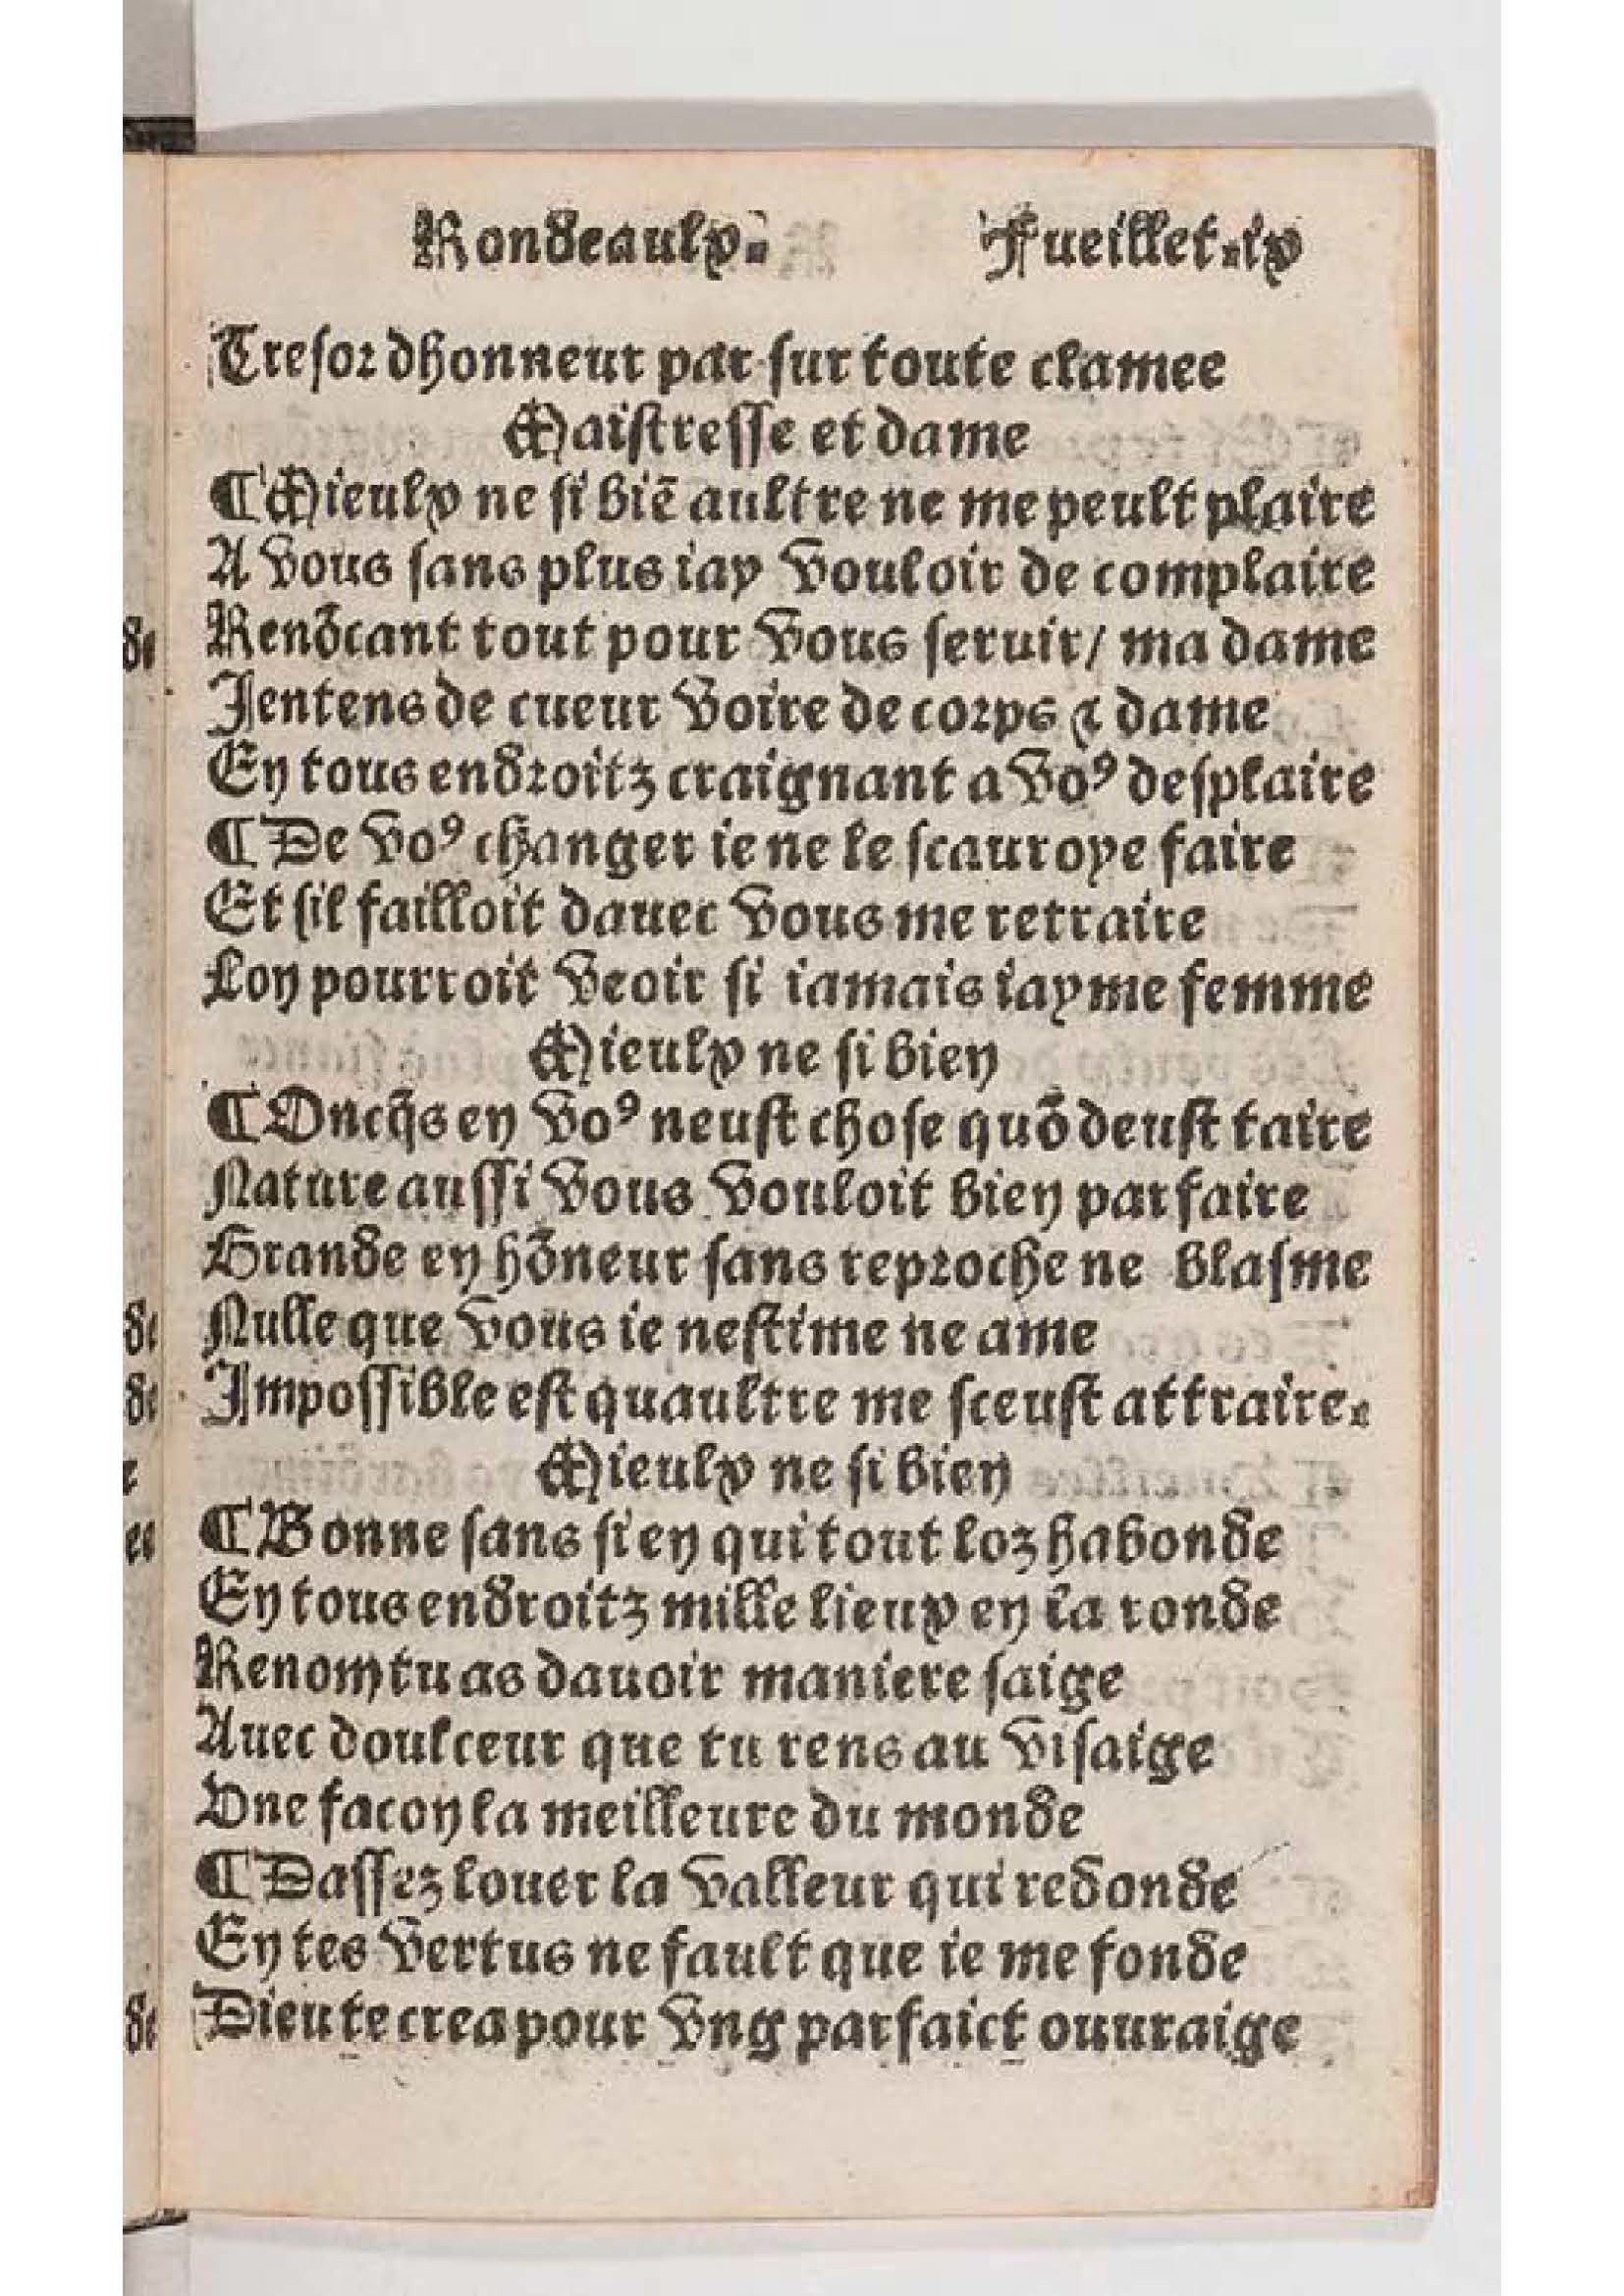 Rondeaulx. Fueillet.ix
Tresor dhonneur par sur toute clamee
Maistresse et dame
¶Mieulx ne si biē aultre ne me peult plaire
A vous sans plus iay vouloir de complaire
Renōcant tout pour vous seruir/ ma dame
Jentens de cueur voire de corps ⁊ dame
En tous endroitz craignant a voꝰ desplaire
¶De voꝰ changer ie ne le scauroye faire
Et sil failloit dauec vous me retraire
Lon pourroit veoir si iamais iayme femme
Mieulx ne si bien
¶Oncq̄s en voꝰ neust chose quō deust taire
Nature aussi vous vouloit bien parfaire
Grande en hōneur sans reproche ne blasme
Nulle que vous ie nestime ne ame
Impossible est quaultre me sceust attraire.
Mieulx ne si bien
¶Bonne sans si en qui tout loz habonde
En tous endroitz mille lieux en la ronde
Renom tu as dauoir maniere saige
Auec doulceur que tu rens au visaige
Vne facon la meilleure du monde
¶Dassez louer la valleur qui redonde
En tes vertus ne fault que ie me fonde
Dieu te crea pour vng parfaict ouuraige